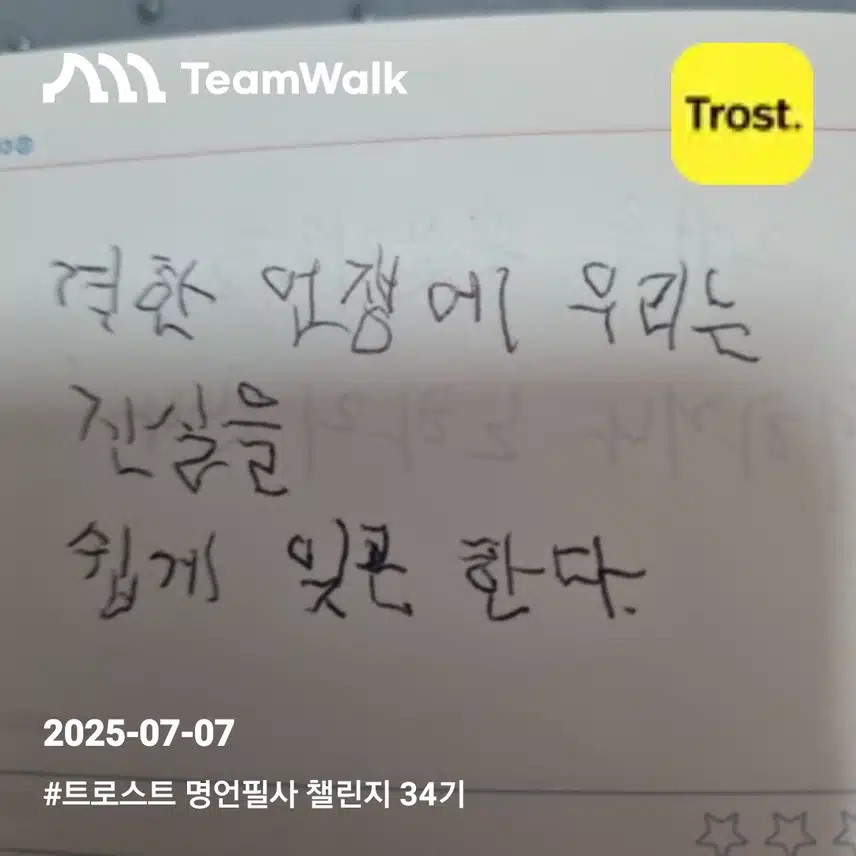 TeamWalk
Trost.
격한 언쟁에 우리는
진실을
쉽게 잊곤 한다.
2025-07-07
#트로스트 명언필사 챌린지 34기